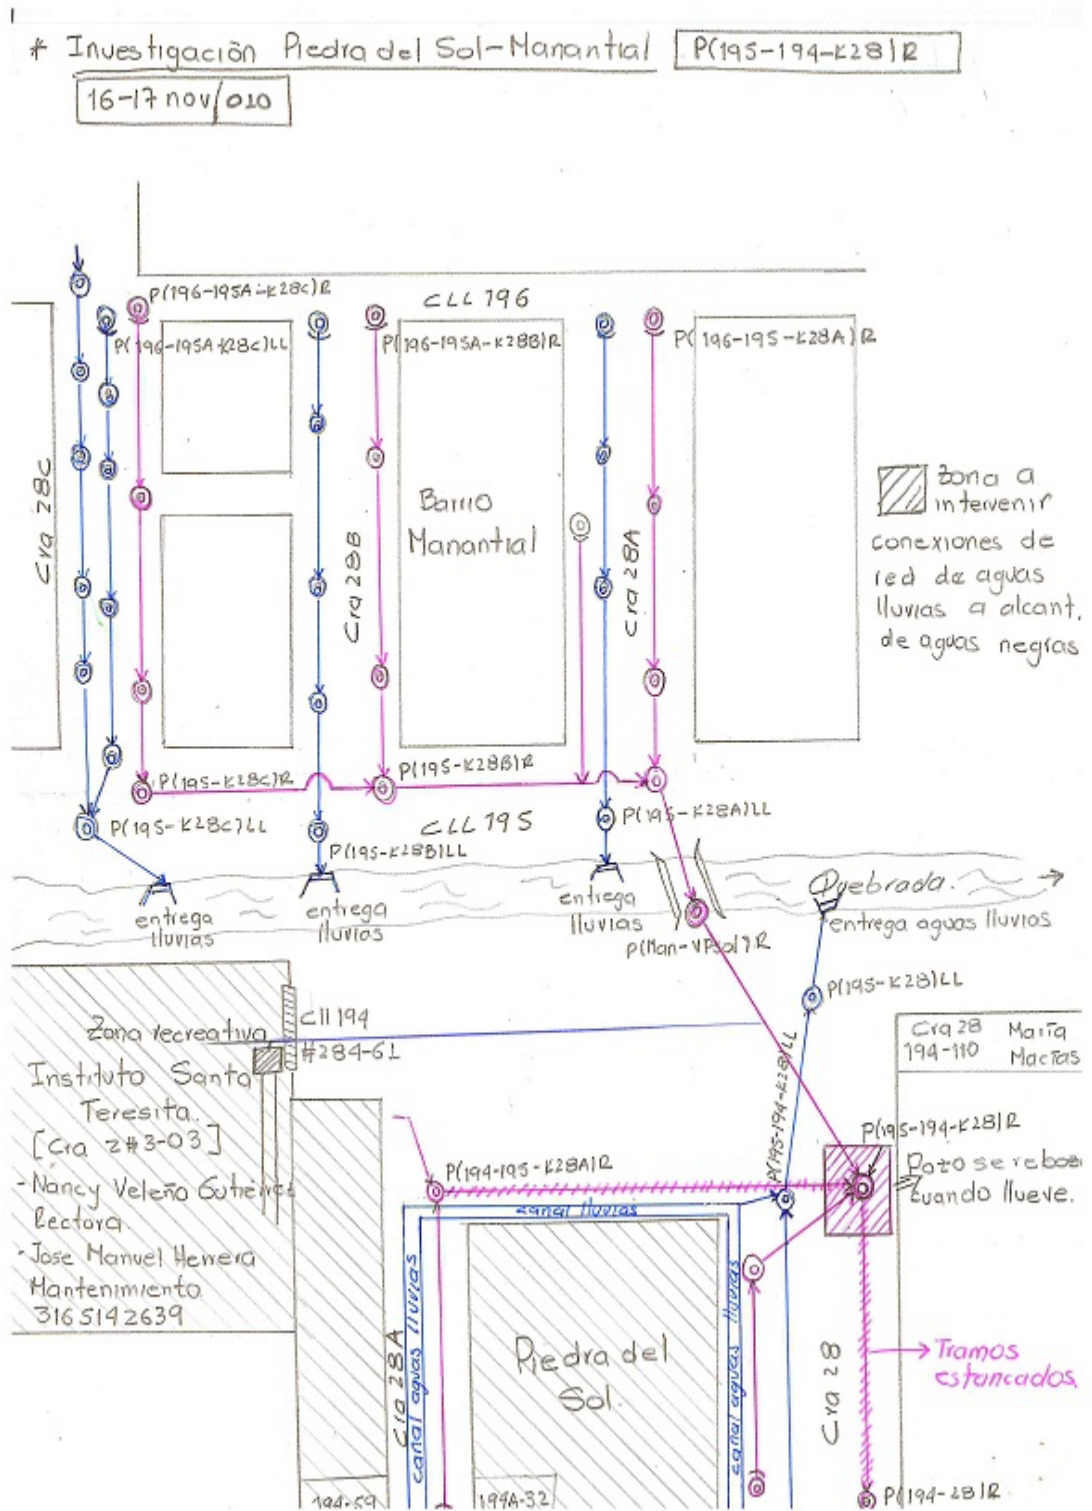 * Investigación Piedra del Sol-Manantial P(195-194-K28)R
16-17 nov/010
P(196-195A-K28C)R
CLL 196
P(196-195A-K28C)LL
P(196-195A-K28B)R
P(196-195-K28A)R
Cra 28C
Cra 28B
Barrio
Manantial
Cra 28A
zona a
intervenir
conexiones de
red de aguas
lluvias a alcant.
de aguas negras
P(195-K28C)R
P(195-K28B)R
P(195-K28C)LL
CLL 195
P(195-K28A)LL
P(195-K28B)LL
Quebrada.
entrega
lluvias
entrega
lluvias
entrega
lluvias
entrega aguas lluvias
P(Man-VPsol)R
P(195-K28)LL
Zona recreativa
Cll 194
#284-61
Cra 28 María
194-110 Macías
Instituto Santa
Teresita.
[Cra 2#3-03]
- Nancy Veleño Gutiérrez
Rectora.
- Jose Manuel Herrera
Mantenimiento
3165142639
P(195-194-K28)LL
P(195-194-K28)R
Pozo se rebosa
cuando llueve.
P(194-195-K28A)R
canal lluvias
Cra 28A
canal aguas lluvias
Piedra del
Sol.
canal aguas lluvias
Cra 28
Tramos
estancados.
194-59
194A-32
P(194-28)R